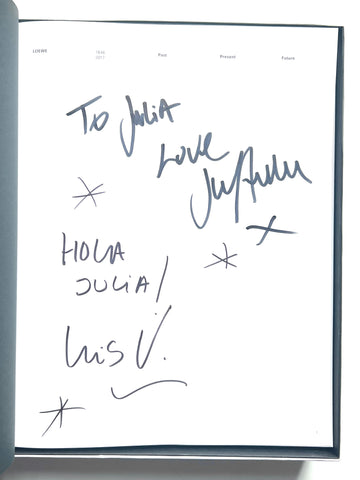 LOEWE 1846 2017 Past Present Future
TO JULIA
LOVE
X
HOLA
JULIA!
LUIS V.